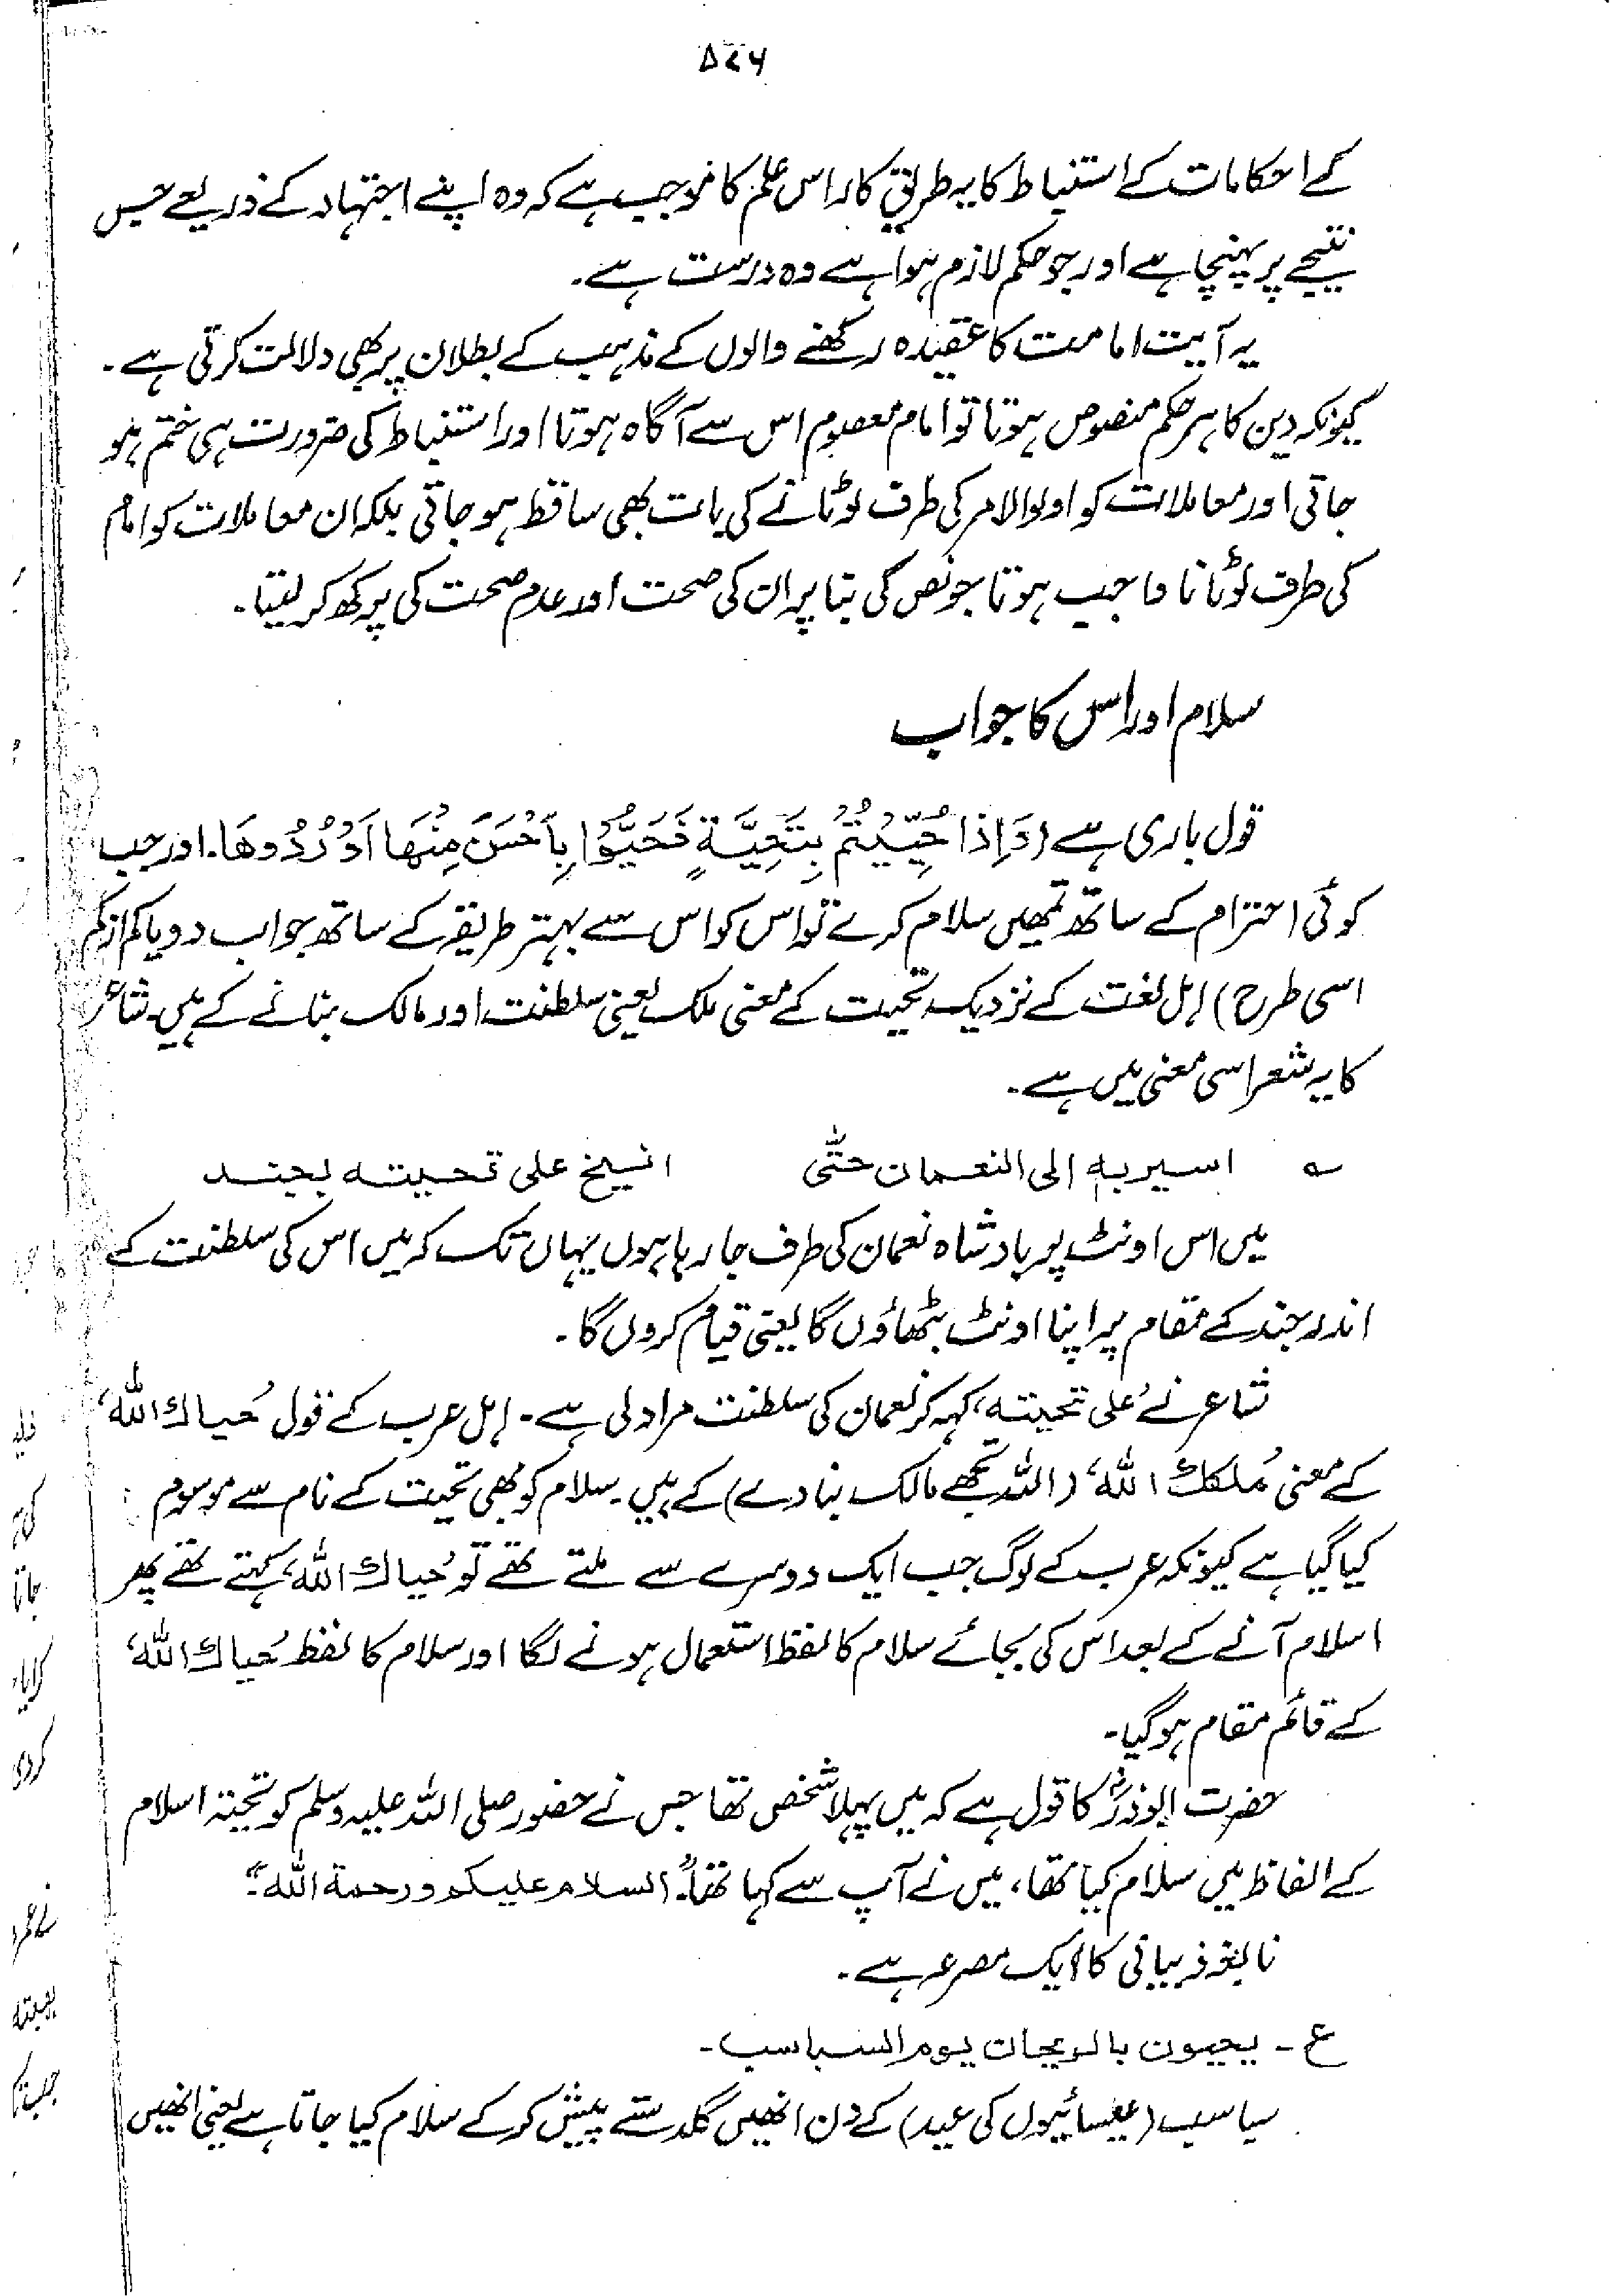 ۵۷۶
کے احکامات کے استنباط کا یہ طریق کار اس علم کا موجب ہے کہ وہ اپنے اجتہاد کے ذریعے جس
نتیجے پر پہنچا ہے اور جو حکم لازم ہوا ہے وہ درست ہے۔
یہ آیت امامت کا عقیدہ رکھنے والوں کے مذہب کے بطلان پر بھی دلالت کرتی ہے۔
کیونکہ دین کا ہر حکم منصوص ہوتا تو امام معصوم اس سے آگاہ ہوتا اور استنباط کی ضرورت ہی ختم ہو
جاتی اور معاملات کو اولوالامر کی طرف لوٹانے کی بات بھی ساقط ہو جاتی بلکہ ان معاملات کو امام
کی طرف لوٹانا واجب ہوتا جو نص کی بنا پر ان کی صحت اور عدم صحت کی پرکھ کر لیتا۔
سلام اور اس کا جواب
قول باری ہے (وَاِذَا حُيِّيْتُمْ بِتَحِيَّةٍ فَحَيُّوْا بِاَحْسَنَ مِنْهَا اَوْ رُدُّوهَا۔ اور جب
کوئی احترام کے ساتھ تمھیں سلام کرے تو اس کو اس سے بہتر طریقے کے ساتھ جواب دو یا کم از کم
اسی طرح) اہل لغت کے نزدیک تحیت کے معنی ملک یعنی سلطنت اور مالک بنانے کے ہیں۔ شاعر
کا یہ شعر اسی معنی میں ہے۔
؎ اسیر به الی النعمان حتّی انیخ علی تحیته بجند
میں اس اونٹ پر بادشاہ نعمان کی طرف جا رہا ہوں یہاں تک کہ میں اس کی سلطنت کے
اندر جند کے مقام پر اپنا اونٹ بٹھاؤں گا یعنی قیام کروں گا۔
شاعر نے ’علی تحیتہ‘ کہہ کر نعمان کی سلطنت مراد لی ہے۔ اہل عرب کے قول ’حیاك الله‘
کے معنی ’ملكك الله‘ (اللہ تجھے مالک بنا دے) کے ہیں۔ سلام کو بھی تحیت کے نام سے موسوم
کیا گیا ہے کیونکہ عرب کے لوگ جب ایک دوسرے سے ملتے تھے تو ’حیاك الله‘ کہتے تھے پھر
اسلام آنے کے بعد اس کی بجائے سلام کا لفظ استعمال ہونے لگا اور سلام کا لفظ ’حیاك الله‘
کے قائم مقام ہو گیا۔
حضرت ابوذرؓ کا قول ہے کہ میں پہلا شخص تھا جس نے حضور صلی اللہ علیہ وسلم کو تحیتہ اسلام
کے الفاظ میں سلام کیا تھا، میں نے آپ سے کہا تھا: "السلام علیکم ورحمة الله"۔
نابغہ ذبیانی کا ایک مصرعہ ہے۔
ع۔ یحیون بالریحان یوم السباسب۔
سباسب (عیسائیوں کی عید) کے دن انھیں گلدستے پیش کر کے سلام کیا جاتا ہے یعنی انھیں